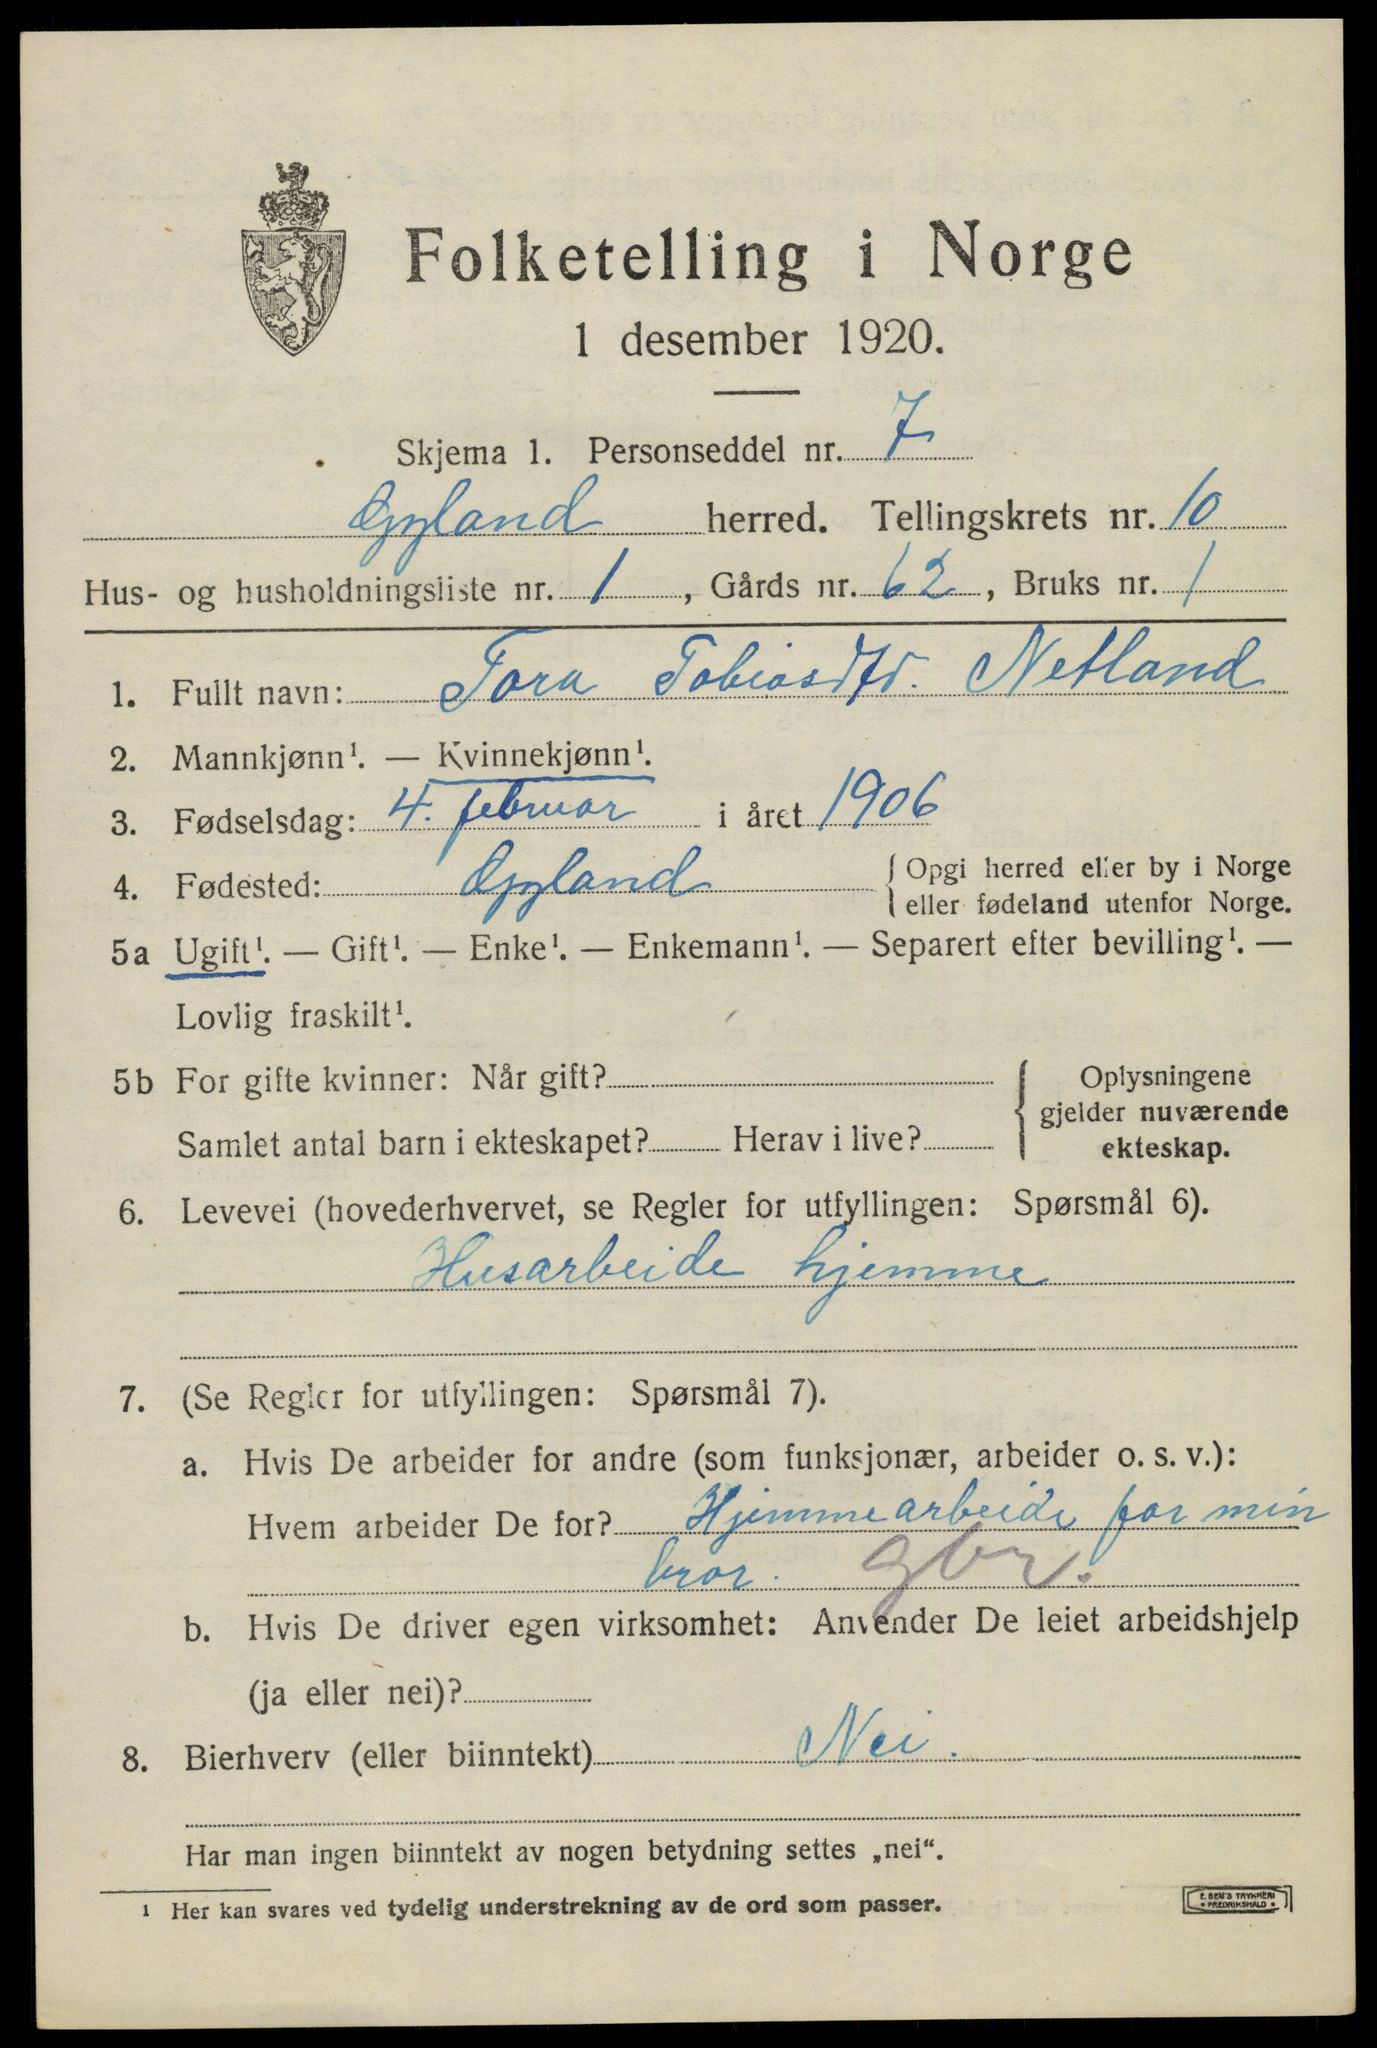 Folketelling i Norge
1 desember 1920.
Skjema 1. Personseddel nr. 7
Gyland herred. Tellingskrets nr. 10
Hus- og husholdningsliste nr. 1, Gårds nr. 62, Bruks nr. 1
1. Fullt navn: Tora Tobiasdtr. Netland
2. Mannkjønn¹. — Kvinnekjønn¹.
3. Fødselsdag: 4. februar i året 1906
4. Fødested: Gyland { Opgi herred eller by i Norge
eller fødeland utenfor Norge.
5a Ugift¹. — Gift¹. — Enke¹. — Enkemann¹. — Separert efter bevilling¹. —
Lovlig fraskilt¹.
5b For gifte kvinner: Når gift?
Samlet antal barn i ekteskapet? Herav i live?
{ Oplysningene
gjelder nuværende
ekteskap.
6. Levevei (hovederhvervet, se Regler for utfyllingen: Spørsmål 6).
Husarbeide hjemme
7. (Se Regler for utfyllingen: Spørsmål 7).
a. Hvis De arbeider for andre (som funksjonær, arbeider o. s. v.):
Hvem arbeider De for? Hjemmearbeide for min
bror. gbr.
b. Hvis De driver egen virksomhet: Anvender De leiet arbeidshjelp
(ja eller nei)?
8. Bierhverv (eller biinntekt) Nei.
Har man ingen biinntekt av nogen betydning settes „nei“.
1 Her kan svares ved tydelig understrekning av de ord som passer.
E. SEM'S TRYKKERI
• FREDRIKSHALD •